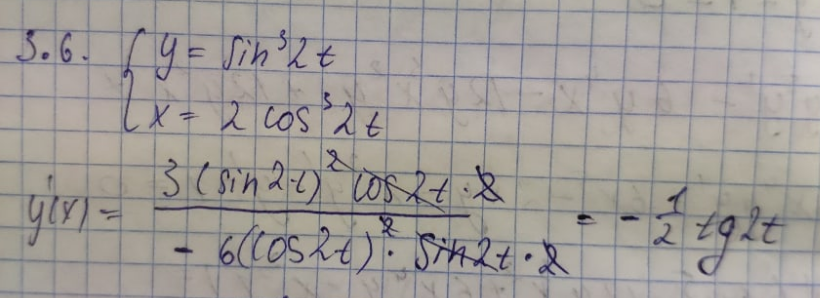 3.6. { y = sin³2t
x = 2 cos³2t
y'(x) = 3(sin2t)² cos2t · 2 / - 6(cos2t)² · sin2t · 2 = - 1/2 tg2t